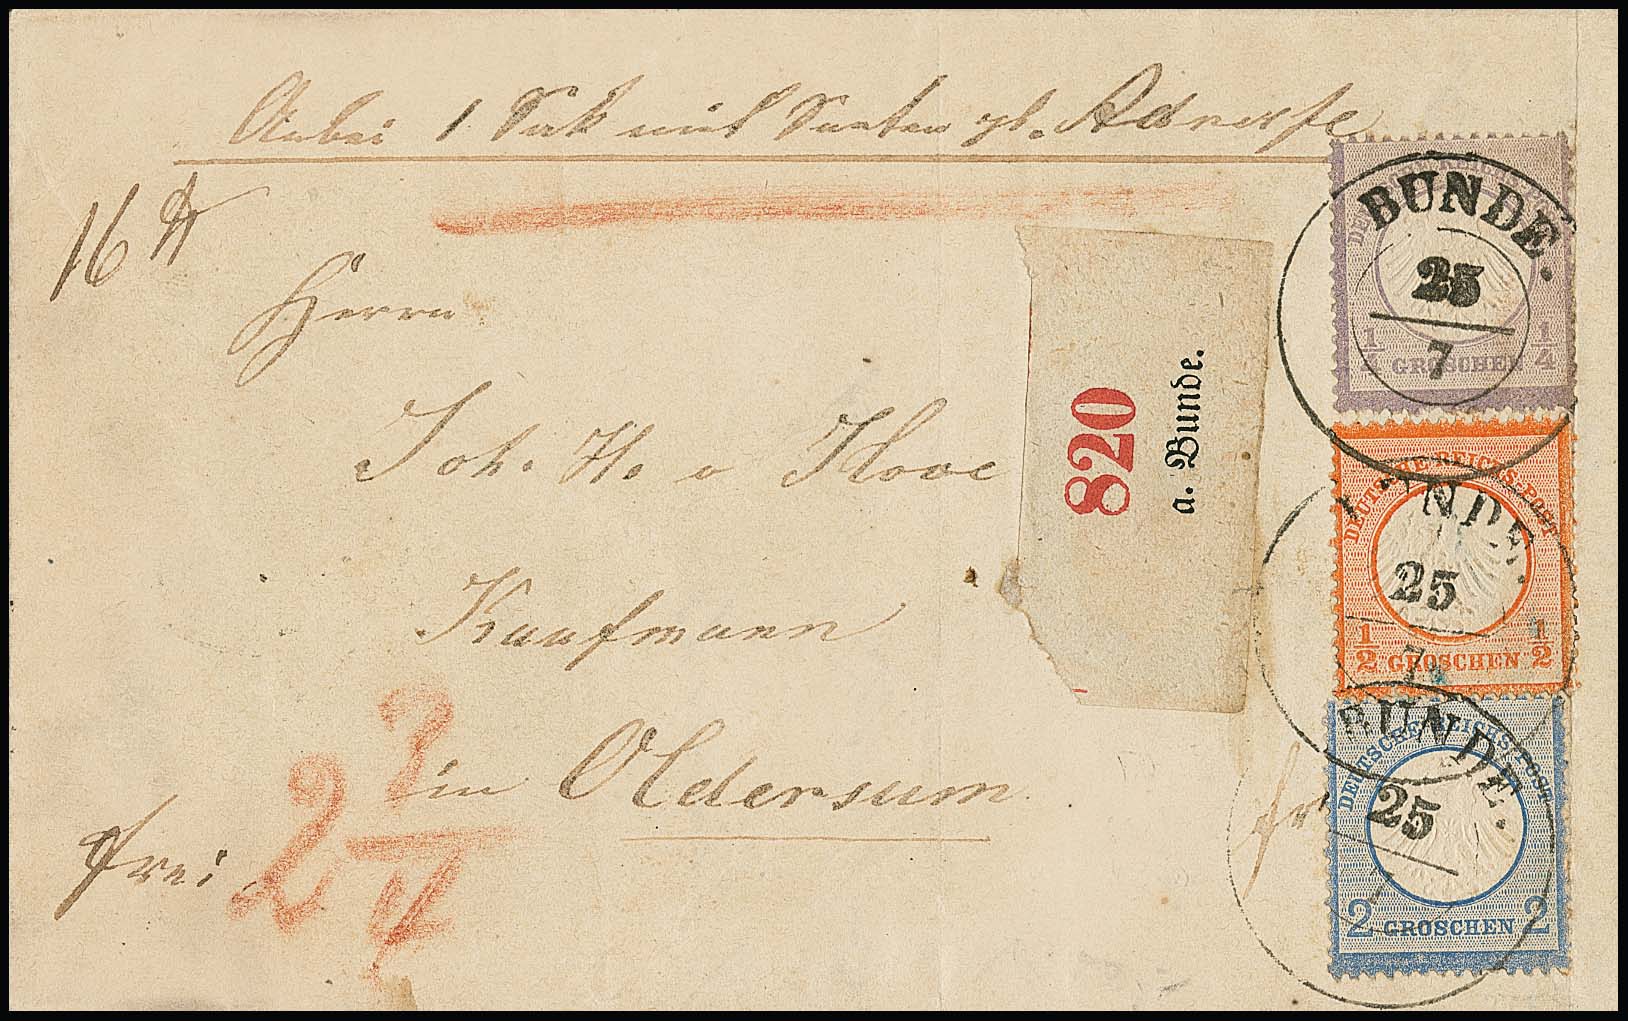 Anbei 1 Sack mit Saaten gl. Adresse
16 ℔
Herrn
Joh. H. v
Kaufmann
in Oldersum
frei
2 3/4
820
a. Bunde.
BUNDE.
25
7
DEUTSCHE REICHS-POST
1/4 GROSCHEN 1/4
BUNDE.
25
7
DEUTSCHE REICHS-POST
1/2 GROSCHEN 1/2
BUNDE.
25
7
DEUTSCHE REICHS-POST
2 GROSCHEN 2